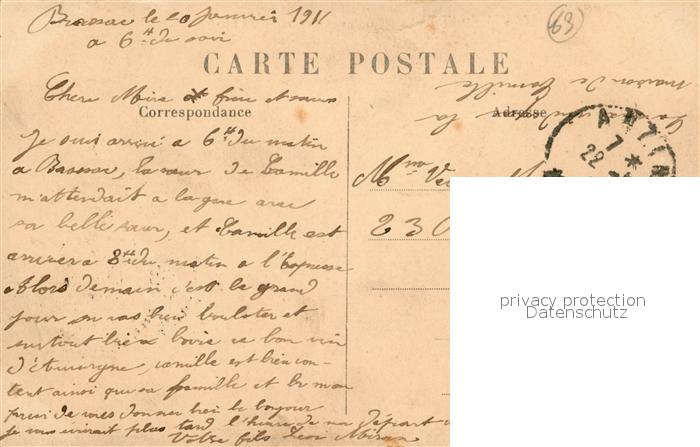 Brassac le 20 Janvier 1911
a 6h du soir
63
CARTE POSTALE
Chere Mère frère et sœur
Correspondance
Adresse
la
maison de Camille
Je suis arrivé a 6h du matin
a Brassac, la sœur de Camille
m'attendait a la gare avec
sa belle sœur, et Camille est
arrivera 8h du matin a l'Express
Alors demain c'est le grand
jour on vas bien boulotter et
surtout bien boire ce bon vin
d'Auvergne, Camille est bien con-
tent ainsi que sa famille et
de vous donner bien le bonjour
Je vous écrirait plus tard l'heure de mon départ
Votre fils Léon
Mme Ve
230
7 *
22
privacy protection
Datenschutz